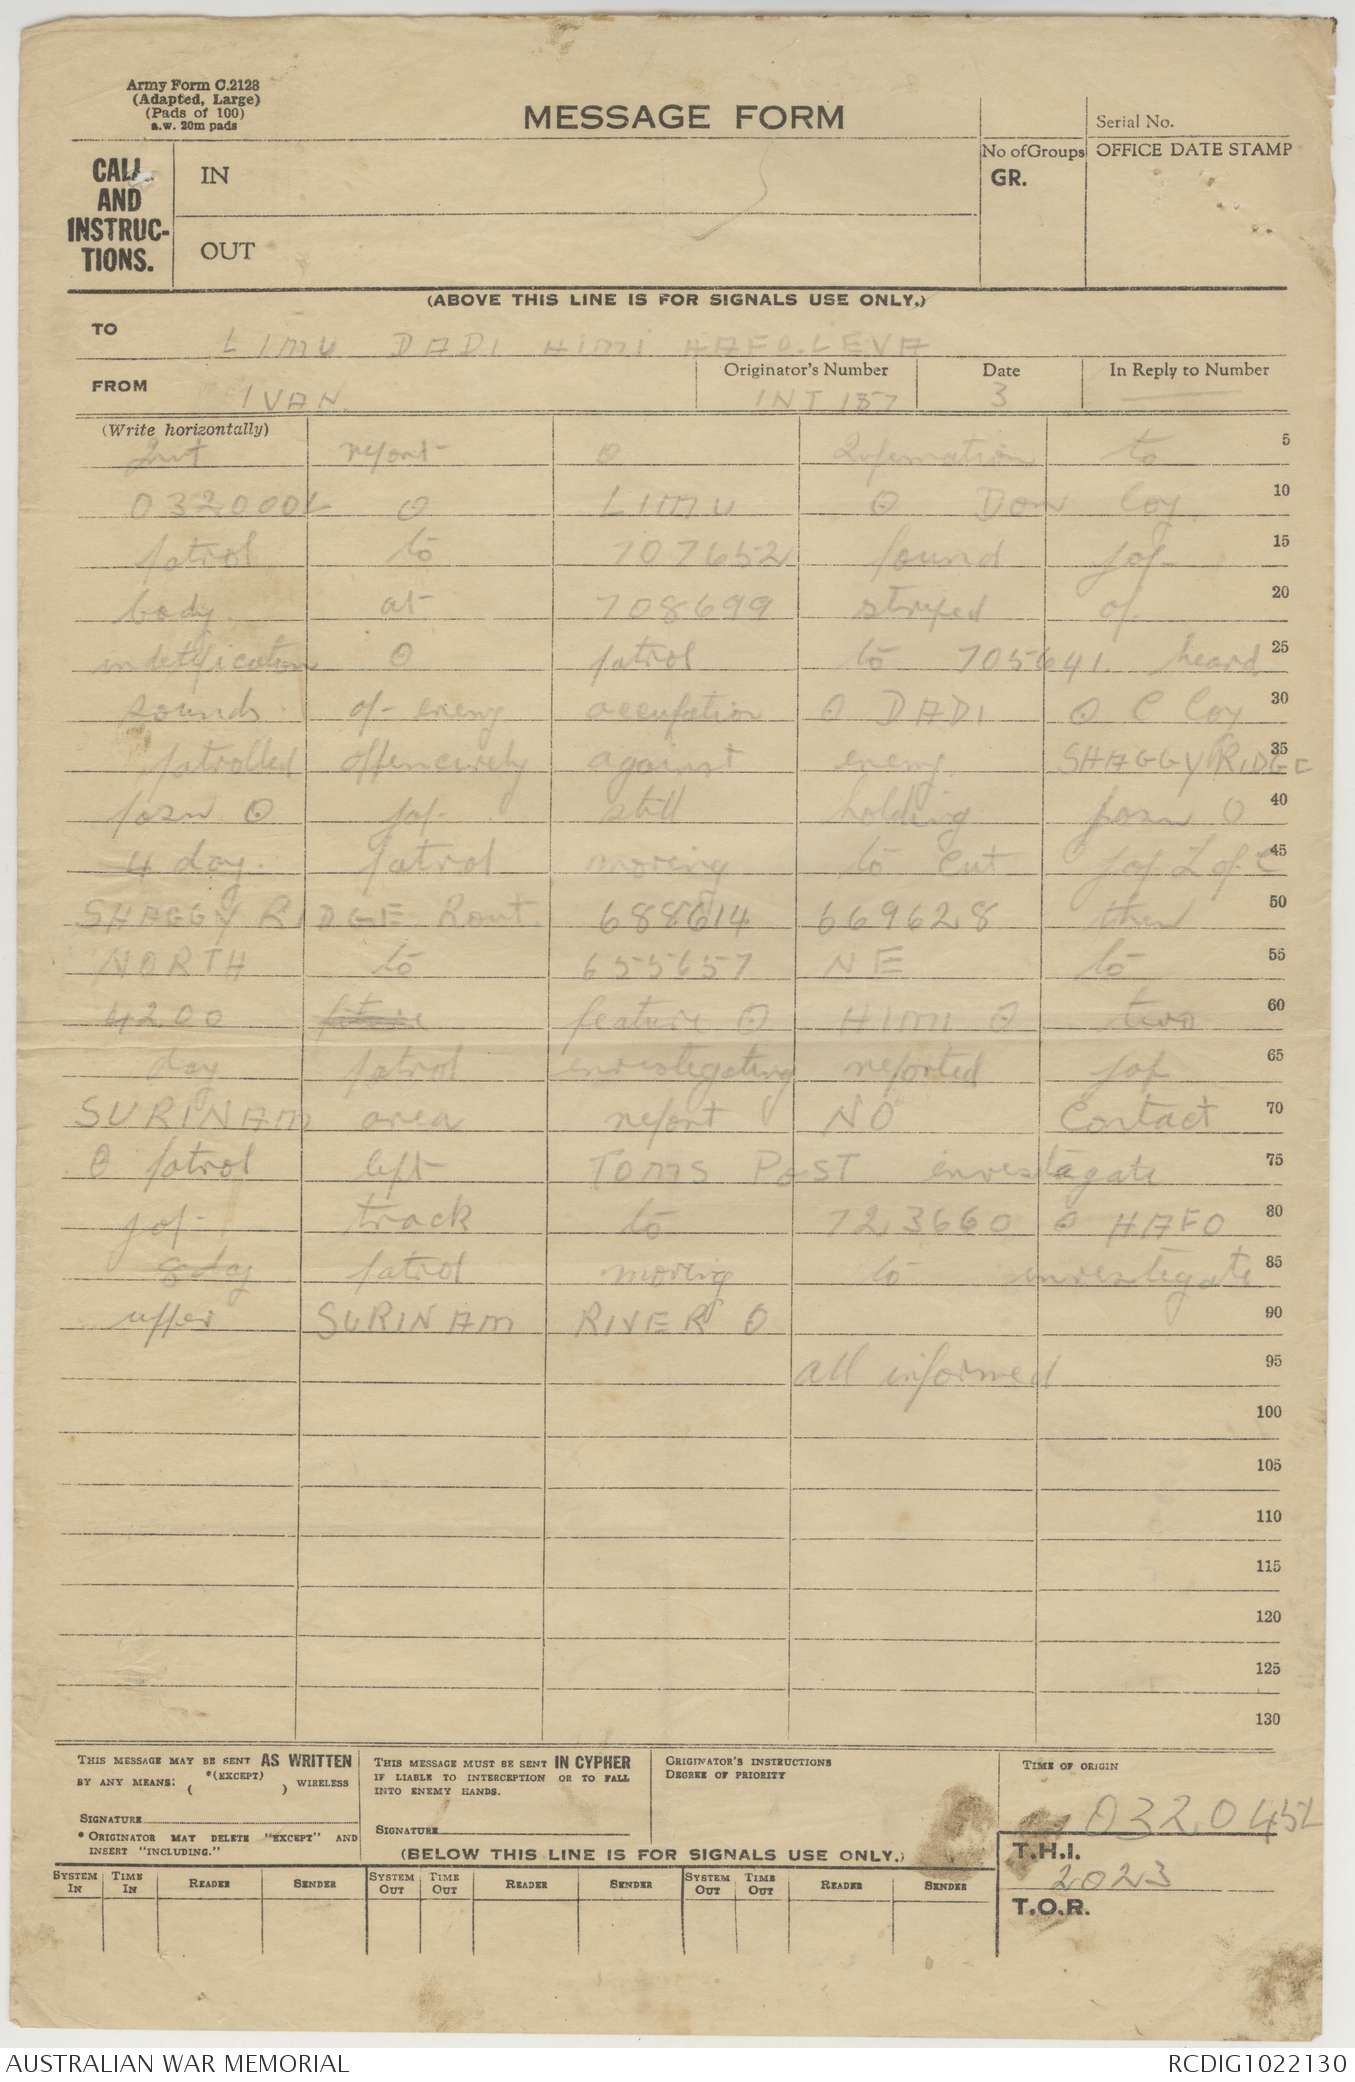 Army Form C.2128
(Adapted, Large)
(Pads of 100)
a.w. 20m pads
MESSAGE FORM
Serial No.
CALL
AND
INSTRUC-
TIONS.
IN
OUT
No of Groups
GR.
OFFICE DATE STAMP
(ABOVE THIS LINE IS FOR SIGNALS USE ONLY.)
TO LIMU DADI HIMI HAFO. LEVA
FROM IVAN.
Originator's Number INT 157
Date 3
In Reply to Number
(Write horizontally)
Int report O Information to 5
032000L O LIMU O DON Coy. 10
patrol to 707652 found jap 15
body. at 708699 striped of 20
indetification O patrol to 705641. heard 25
sounds of enemy occupation O DADI O C Coy 30
patrolled offencively against enemy. SHAGGY RIDGE 35
posn O jap still holding posn O 40
4 day. patrol moving to cut jap L of C 45
SHAGGY RIDGE Rout. 688614 669628 then 50
NORTH to 655657 NE to 55
4200 feature O HIMI O two 60
day patrol investigating reported jap 65
SURINAM area report NO Contact 70
O patrol left TOMS POST envestigate 75
jap track to 723660 O HAFO 80
8 day patrol moving to investigate 85
upper SURINAM RIVER O 90
all informed 95
100
105
110
115
120
125
130
THIS MESSAGE MAY BE SENT AS WRITTEN
BY ANY MEANS: ( *(EXCEPT) ) WIRELESS
SIGNATURE
* ORIGINATOR MAY DELETE "EXCEPT" AND
INSERT "INCLUDING."
THIS MESSAGE MUST BE SENT IN CYPHER
IF LIABLE TO INTERCEPTION OR TO FALL
INTO ENEMY HANDS.
SIGNATURE
ORIGINATOR'S INSTRUCTIONS
DEGREE OF PRIORITY
TIME OF ORIGIN
032045L
(BELOW THIS LINE IS FOR SIGNALS USE ONLY.)
T.H.I.
2023
T.O.R.
SYSTEM IN TIME IN READER SENDER SYSTEM OUT TIME OUT READER SENDER SYSTEM OUT TIME OUT READER SENDER
AUSTRALIAN WAR MEMORIAL
RCDIG1022130